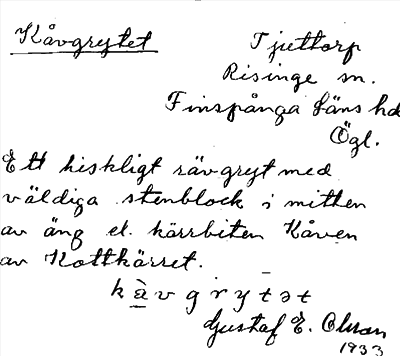 Kåvgrytet
Tjuttorp
Risinge sn.
Finspånga läns hd
Ögl.
Ett hiskligt rävgryt med
väldiga stenblock i mitten
av äng el. kärrbiten Kåven
av Kottkärret.
k à v g r y t ə t
Gustaf E. Olsson
1933